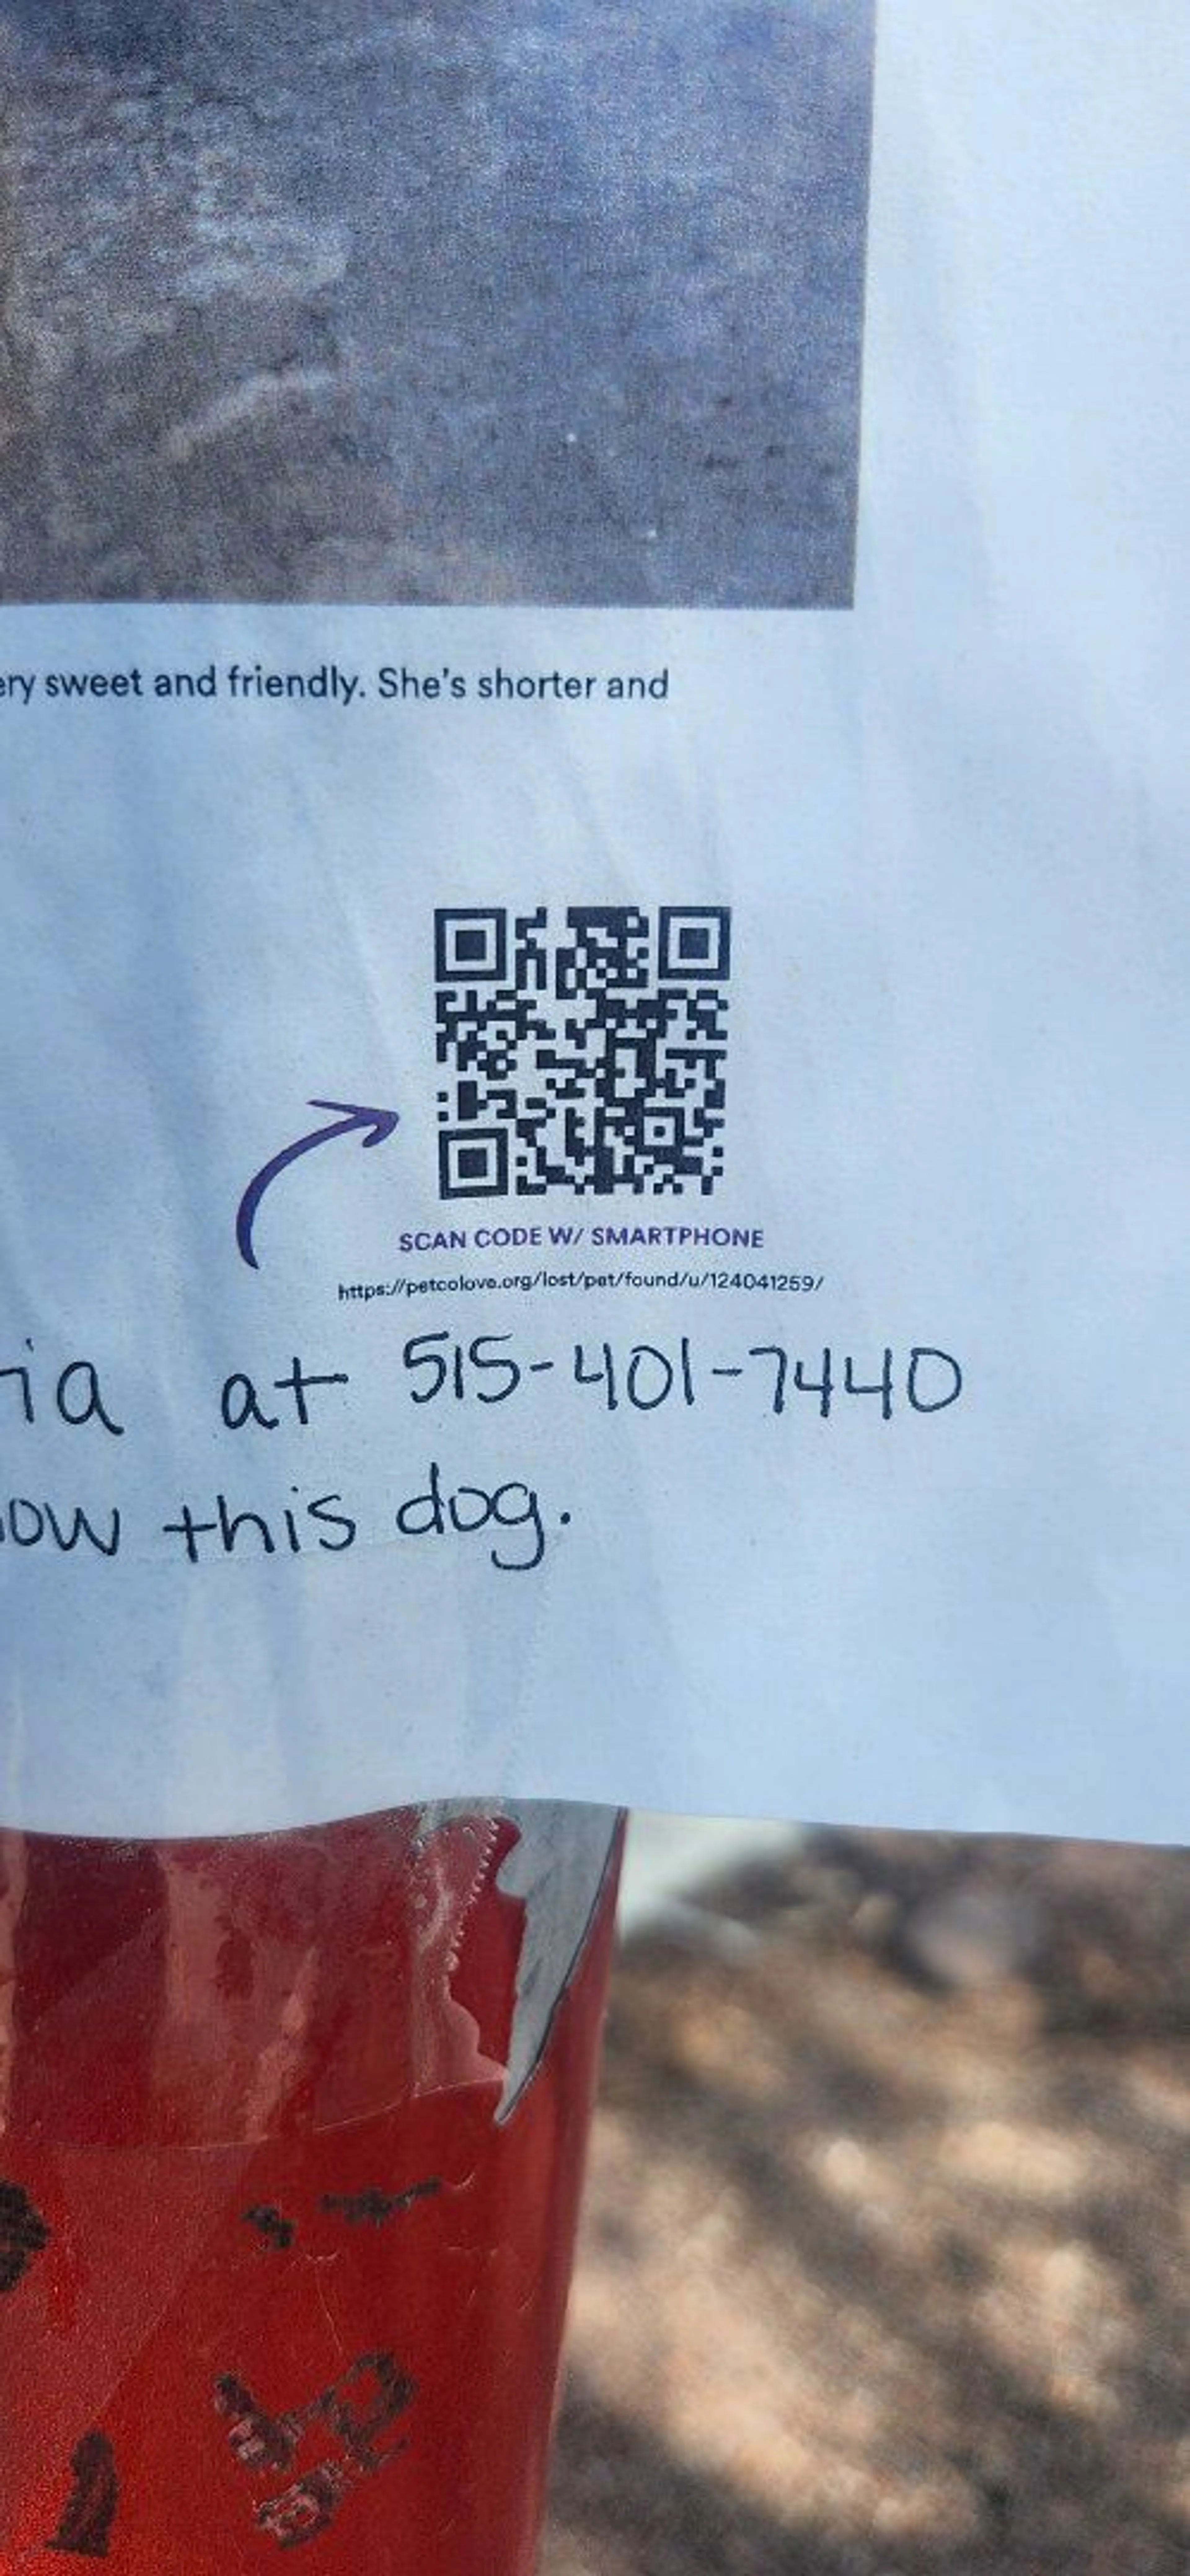 ery sweet and friendly. She's shorter and
SCAN CODE W/ SMARTPHONE
https://petcolove.org/lost/pet/found/u/124041259/
ia at 515-401-7440
ow this dog.